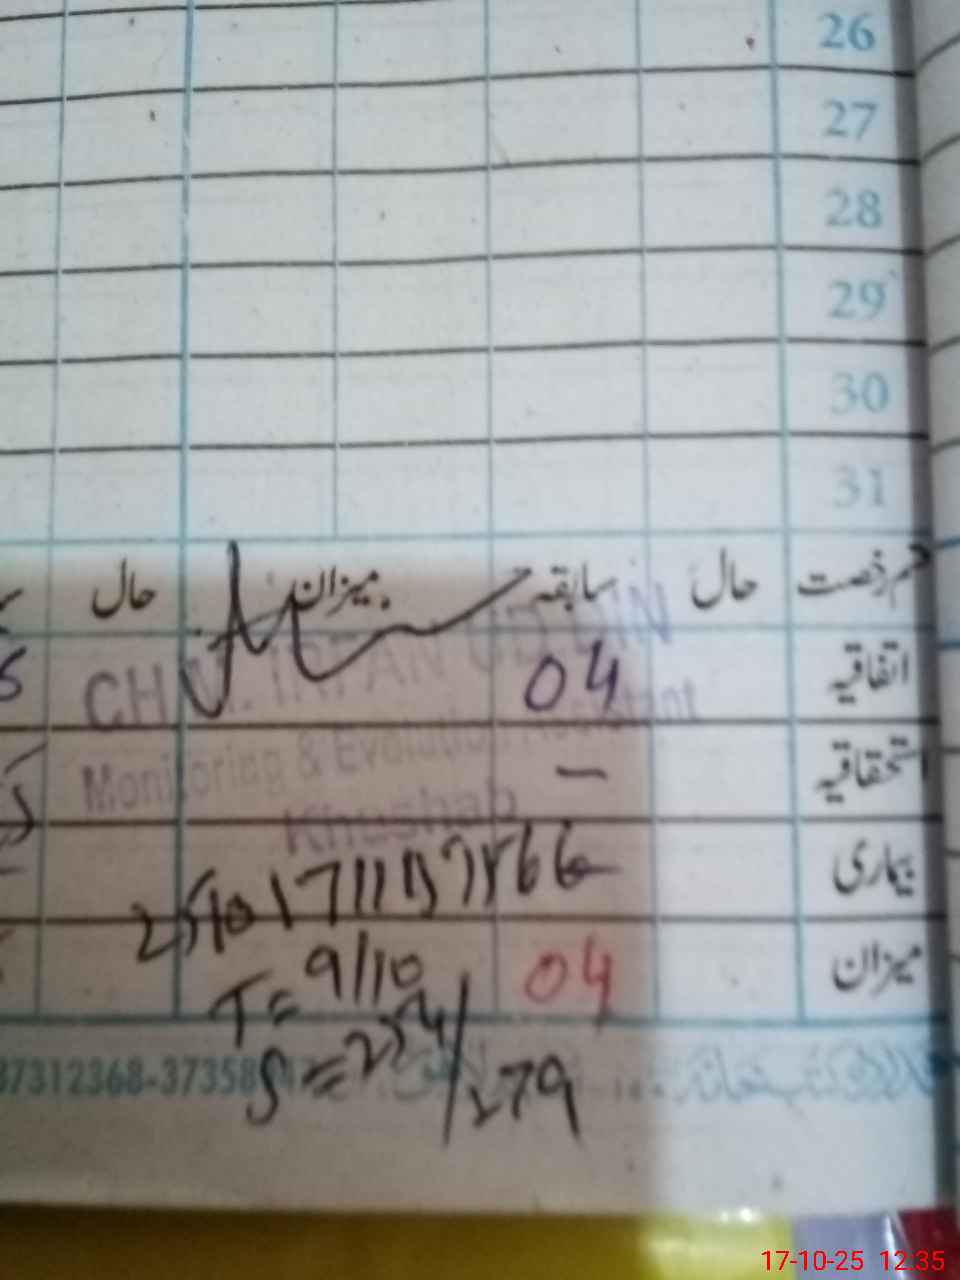 26
27
28
29
30
31
قسم رخصت حال سابقہ میزان حال
اتفاقیہ 04
استحقاقیہ —
بیماری
میزان 04
CH M. IRFAN UD DIN
Monitoring & Evolution Assistant
Khushab
T= 9/10
S= 254/279
37312368-37358
17-10-25 12:35